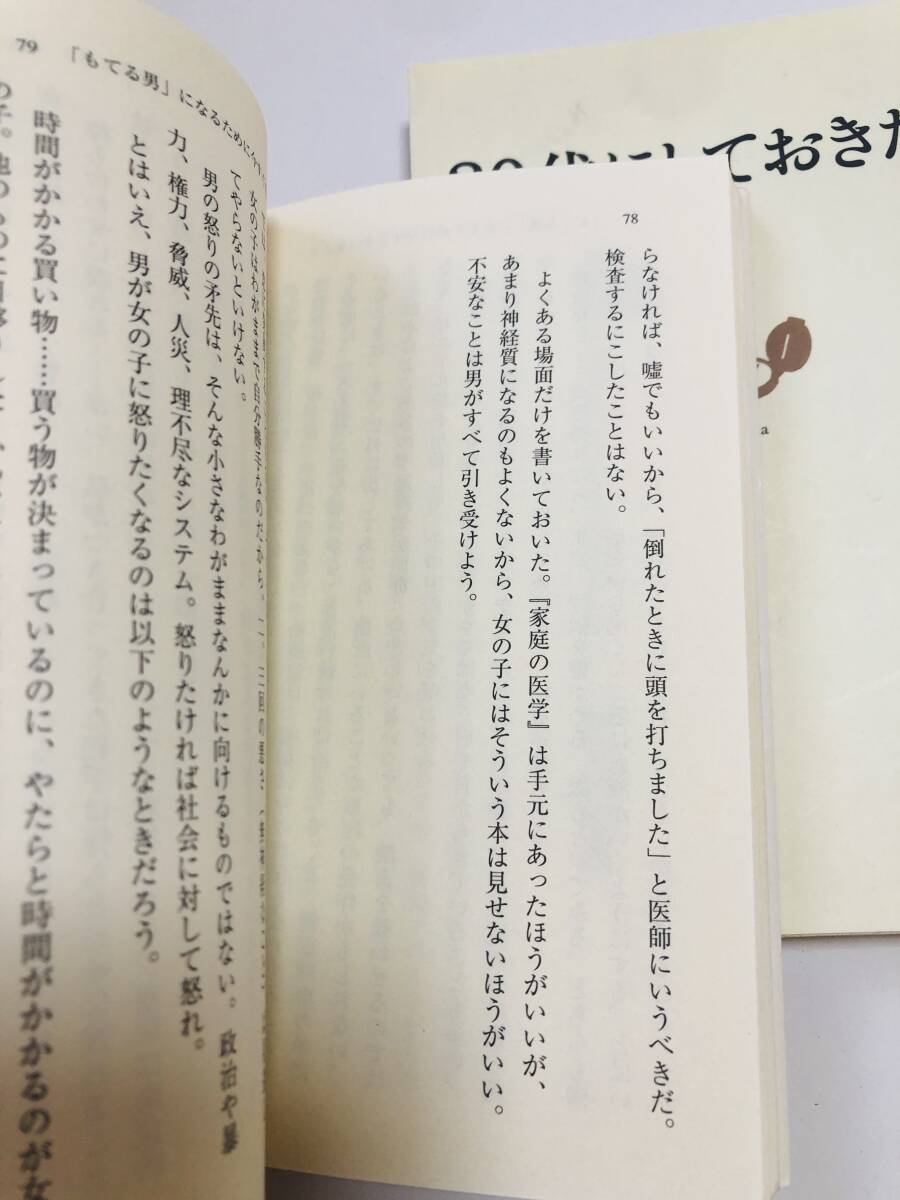 78
らなければ、嘘でもいいから、「倒れたときに頭を打ちました」と医師にいうべきだ。
検査するにこしたことはない。
よくある場面だけを書いておいた。『家庭の医学』は手元にあったほうがいいが、
あまり神経質になるのもよくないから、女の子にはそういう本は見せないほうがいい。
不安なことは男がすべて引き受けよう。
79 「もてる男」になるために
女の子はわがままで自分勝手なのだから、二、三回の悪さ
てやらないといけない。
男の怒りの矛先は、そんな小さなわがままなんかに向けるものではない。政治や暴
力、権力、脅威、人災、理不尽なシステム。怒りたければ社会に対して怒れ。
とはいえ、男が女の子に怒りたくなるのは以下のようなときだろう。
時間がかかる買い物……買う物が決まっているのに、やたらと時間がかかるのが女
の子。他のものに目移り
代にしておきた
a